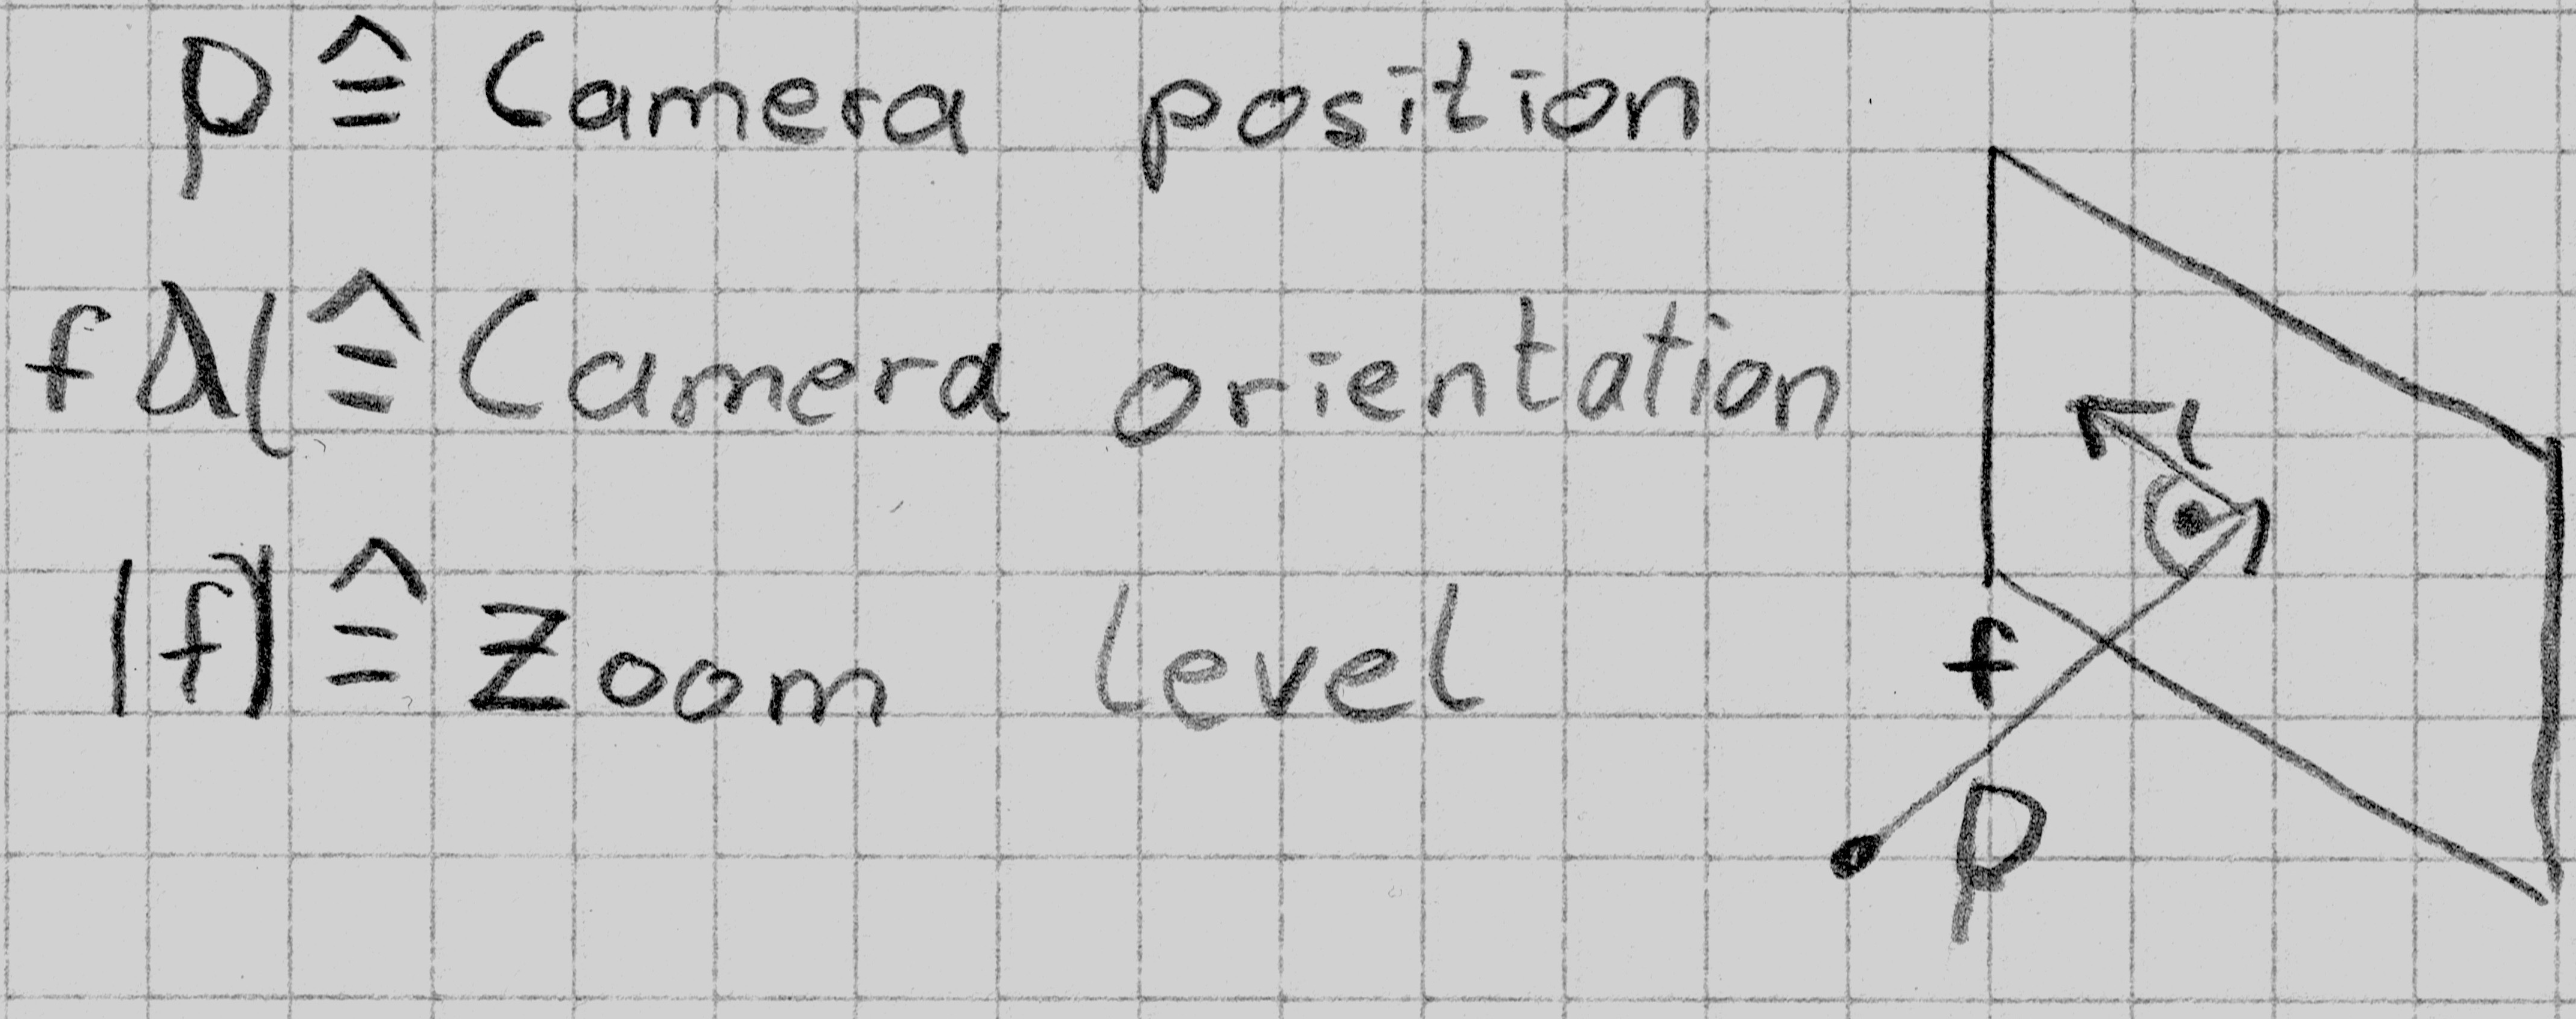 p ≙ Camera position
f ∧ l ≙ Camera orientation
|f| ≙ Zoom level
l
f
p